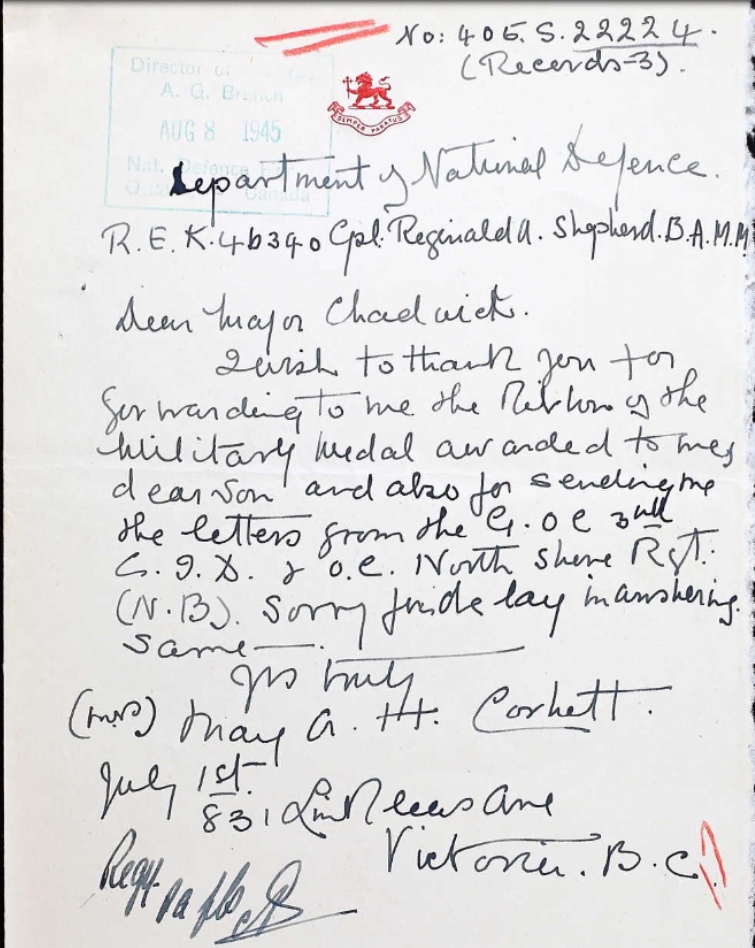 No: 405. S. 22224.
(Records-3).
Director of
A. G. Branch
AUG 8 1945
Nat. Defence
Canada
SEMPER PARATUS
Department of National Defence.
R. E. K. 46340 Cpl. Reginald A. Shepherd. B.A. M.M
Dear Major Chadwick.
I wish to thank you for
forwarding to me the Ribbon of the
Military Medal awarded to my
dear son and also for sending me
the letters from the G. O C 3rd
C. I. D. & O.C. North Shore Rgt.
(N.B). Sorry for delay in answering
same.
Yrs truly
(Mrs) May A. H. Corbett.
July 1st.
831 Ave
Victoria. B. C.